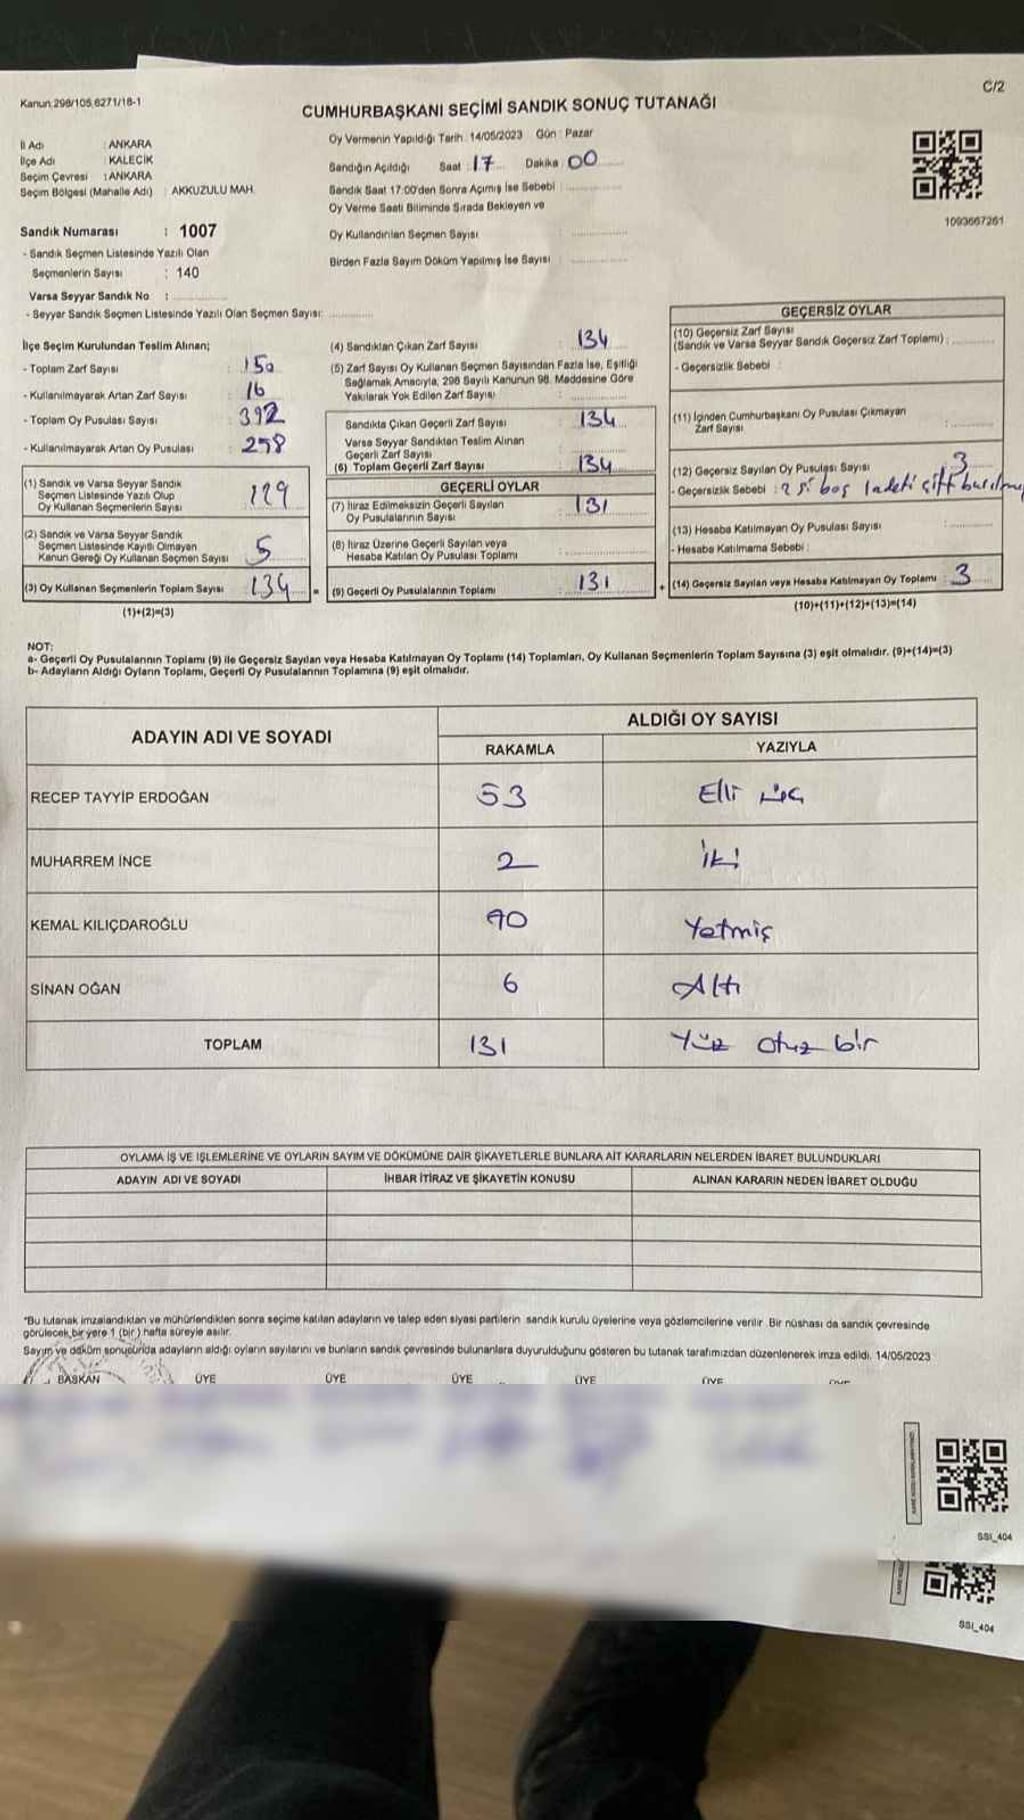 Kanun.298/105,6271/16-1
C/2
CUMHURBAŞKANI SEÇİMİ SANDIK SONUÇ TUTANAĞI
İl Adı : ANKARA
İlçe Adı : KALECİK
Seçim Çevresi : ANKARA
Seçim Bölgesi (Mahalle Adı) : AKKUZULU MAH.
Oy Vermenin Yapıldığı Tarih : 14/05/2023 Gün : Pazar
Sandığın Açıldığı Saat : 17 Dakika : 00
Sandık Saat 17:00'den Sonra Açımış İse Sebebi :
Oy Verme Saati Bitiminde Sırada Bekleyen ve
Oy Kullandırılan Seçmen Sayısı :
Birden Fazla Sayım Döküm Yapılmış İse Sayısı :
1093667261
Sandık Numarası : 1007
- Sandık Seçmen Listesinde Yazılı Olan
Seçmenlerin Sayısı : 140
Varsa Seyyar Sandık No :
- Seyyar Sandık Seçmen Listesinde Yazılı Olan Seçmen Sayısı:
İlçe Seçim Kurulundan Teslim Alınan;
- Toplam Zarf Sayısı : 150
- Kullanılmayarak Artan Zarf Sayısı : 16
- Toplam Oy Pusulası Sayısı : 392
- Kullanılmayarak Artan Oy Pusulası : 258
(1) Sandık ve Varsa Seyyar Sandık
Seçmen Listesinde Yazılı Olup
Oy Kullanan Seçmenlerin Sayısı : 129
(2) Sandık ve Varsa Seyyar Sandık
Seçmen Listesinde Kayıtlı Olmayan
Kanun Gereği Oy Kullanan Seçmen Sayısı : 5
(3) Oy Kullanan Seçmenlerin Toplam Sayısı : 134
(1)+(2)=(3)
(4) Sandıktan Çıkan Zarf Sayısı : 134
(5) Zarf Sayısı Oy Kullanan Seçmen Sayısından Fazla İse, Eşitliği
Sağlamak Amacıyla, 298 Sayılı Kanunun 98. Maddesine Göre
Yakılarak Yok Edilen Zarf Sayısı :
Sandıkta Çıkan Geçerli Zarf Sayısı : 134
Varsa Seyyar Sandıktan Teslim Alınan
Geçerli Zarf Sayısı :
(6) Toplam Geçerli Zarf Sayısı : 134
GEÇERLİ OYLAR
(7) İtiraz Edilmeksizin Geçerli Sayılan
Oy Pusulalarının Sayısı : 131
(8) İtiraz Üzerine Geçerli Sayılan veya
Hesaba Katılan Oy Pusulası Toplamı :
= (9) Geçerli Oy Pusulalarının Toplamı : 131
GEÇERSİZ OYLAR
(10) Geçersiz Zarf Sayısı
(Sandık ve Varsa Seyyar Sandık Geçersiz Zarf Toplamı) :
- Geçersizlik Sebebi :
(11) İçinden Cumhurbaşkanı Oy Pusulası Çıkmayan
Zarf Sayısı :
(12) Geçersiz Sayılan Oy Pusulası Sayısı : 3
- Geçersizlik Sebebi : 2 si boş 1 adeti çift
(13) Hesaba Katılmayan Oy Pusulası Sayısı :
- Hesaba Katılmama Sebebi :
+ (14) Geçersiz Sayılan veya Hesaba Katılmayan Oy Toplamı : 3
(10)+(11)+(12)+(13)=(14)
NOT:
a- Geçerli Oy Pusulalarının Toplamı (9) ile Geçersiz Sayılan veya Hesaba Katılmayan Oy Toplamı (14) Toplamları, Oy Kullanan Seçmenlerin Toplam Sayısına (3) eşit olmalıdır. (9)+(14)=(3)
b- Adayların Aldığı Oyların Toplamı, Geçerli Oy Pusulalarının Toplamına (9) eşit olmalıdır.
ADAYIN ADI VE SOYADI
ALDIĞI OY SAYISI
RAKAMLA YAZIYLA
RECEP TAYYİP ERDOĞAN 53 Elli üç
MUHARREM İNCE 2 İki
KEMAL KILIÇDAROĞLU 70 Yetmiş
SİNAN OĞAN 6 Altı
TOPLAM 131 Yüz otuz bir
OYLAMA İŞ VE İŞLEMLERİNE VE OYLARIN SAYIM VE DÖKÜMÜNE DAİR ŞİKAYETLERLE BUNLARA AİT KARARLARIN NELERDEN İBARET BULUNDUKLARI
ADAYIN ADI VE SOYADI İHBAR İTİRAZ VE ŞİKAYETİN KONUSU ALINAN KARARIN NEDEN İBARET OLDUĞU
*Bu tutanak imzalandıktan ve mühürlendikten sonra seçime katılan adayların ve talep eden siyasi partilerin sandık kurulu üyelerine veya gözlemcilerine verilir. Bir nüshası da sandık çevresinde
görülecek bir yere 1 (bir) hafta süreyle asılır.
Sayım ve döküm sonucunda adayların aldığı oyların sayılarını ve bunların sandık çevresinde bulunanlara duyurulduğunu gösteren bu tutanak tarafımızdan düzenlenerek imza edildi. 14/05/2023
BAŞKAN ÜYE ÜYE ÜYE ÜYE ÜYE
SSI_404
SSI_404